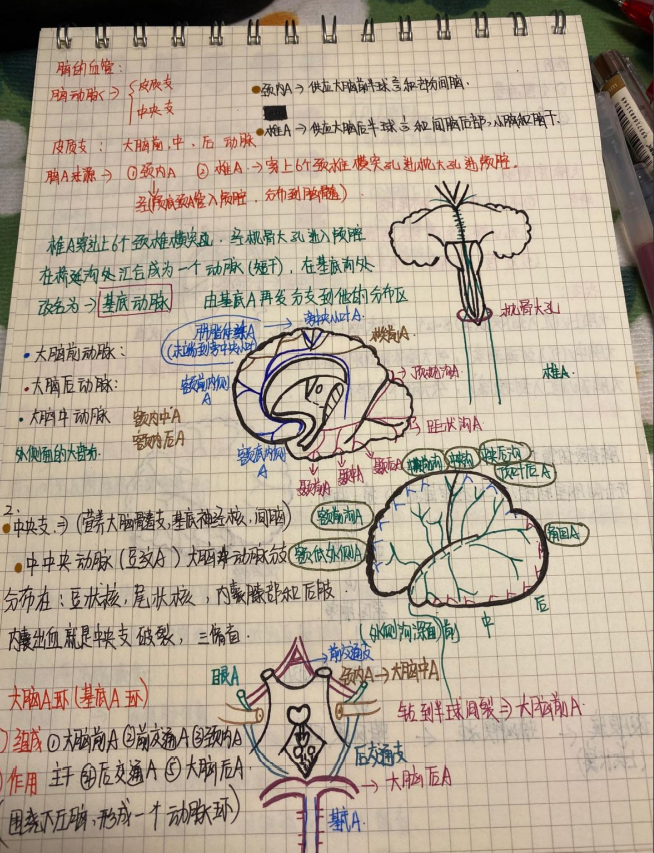 脑的血管:
脑动脉→ 皮质支
中央支
颈内A→供应大脑前半球⅔和部分间脑.
椎A→供应大脑后半球⅓和间脑后部,小脑和脑干.
皮质支: 大脑前,中,后 动脉
脑A来源→ ①颈内A ②椎A.→穿上6个颈椎横突孔进枕大孔进颅腔.
椎A穿过上6个颈椎横突孔, 经枕骨大孔进入颅腔
在 沟处汇合成为一个动脉(短干), 在基底沟处
改名为→ 基底动脉 由基底A再发分支到他的分布区
枕骨大孔
椎A.
• 大脑前动脉:
• 大脑后动脉:
• 大脑中动脉
外侧面的大部分.
额内中A
额内后A
额前内侧A
额底内侧A
楔前A
顶枕沟A
距状沟A
颞前A
颞中A
颞后A
中央沟
额前沟A
额底外侧A
角回A
2.
• 中央支⇒(营养大脑髓质,基底神经核,间脑)
• 中中央动脉(豆纹A)大脑中动脉分支
分布在: 豆状核, 尾状核, 内囊膝部和后肢.
内囊出血就是中央支破裂, 三偏盲.
(外侧沟深面)前 中 后
大脑A环(基底A环)
组成 ①大脑前A ②前交通A ③颈内A
④后交通A ⑤大脑后A
作用
(围绕 , 形成一个动脉环)
眼A
前交通支
颈内A→大脑中A
钻到半球间裂⇒大脑前A.
后交通支
→大脑后A
基底A.